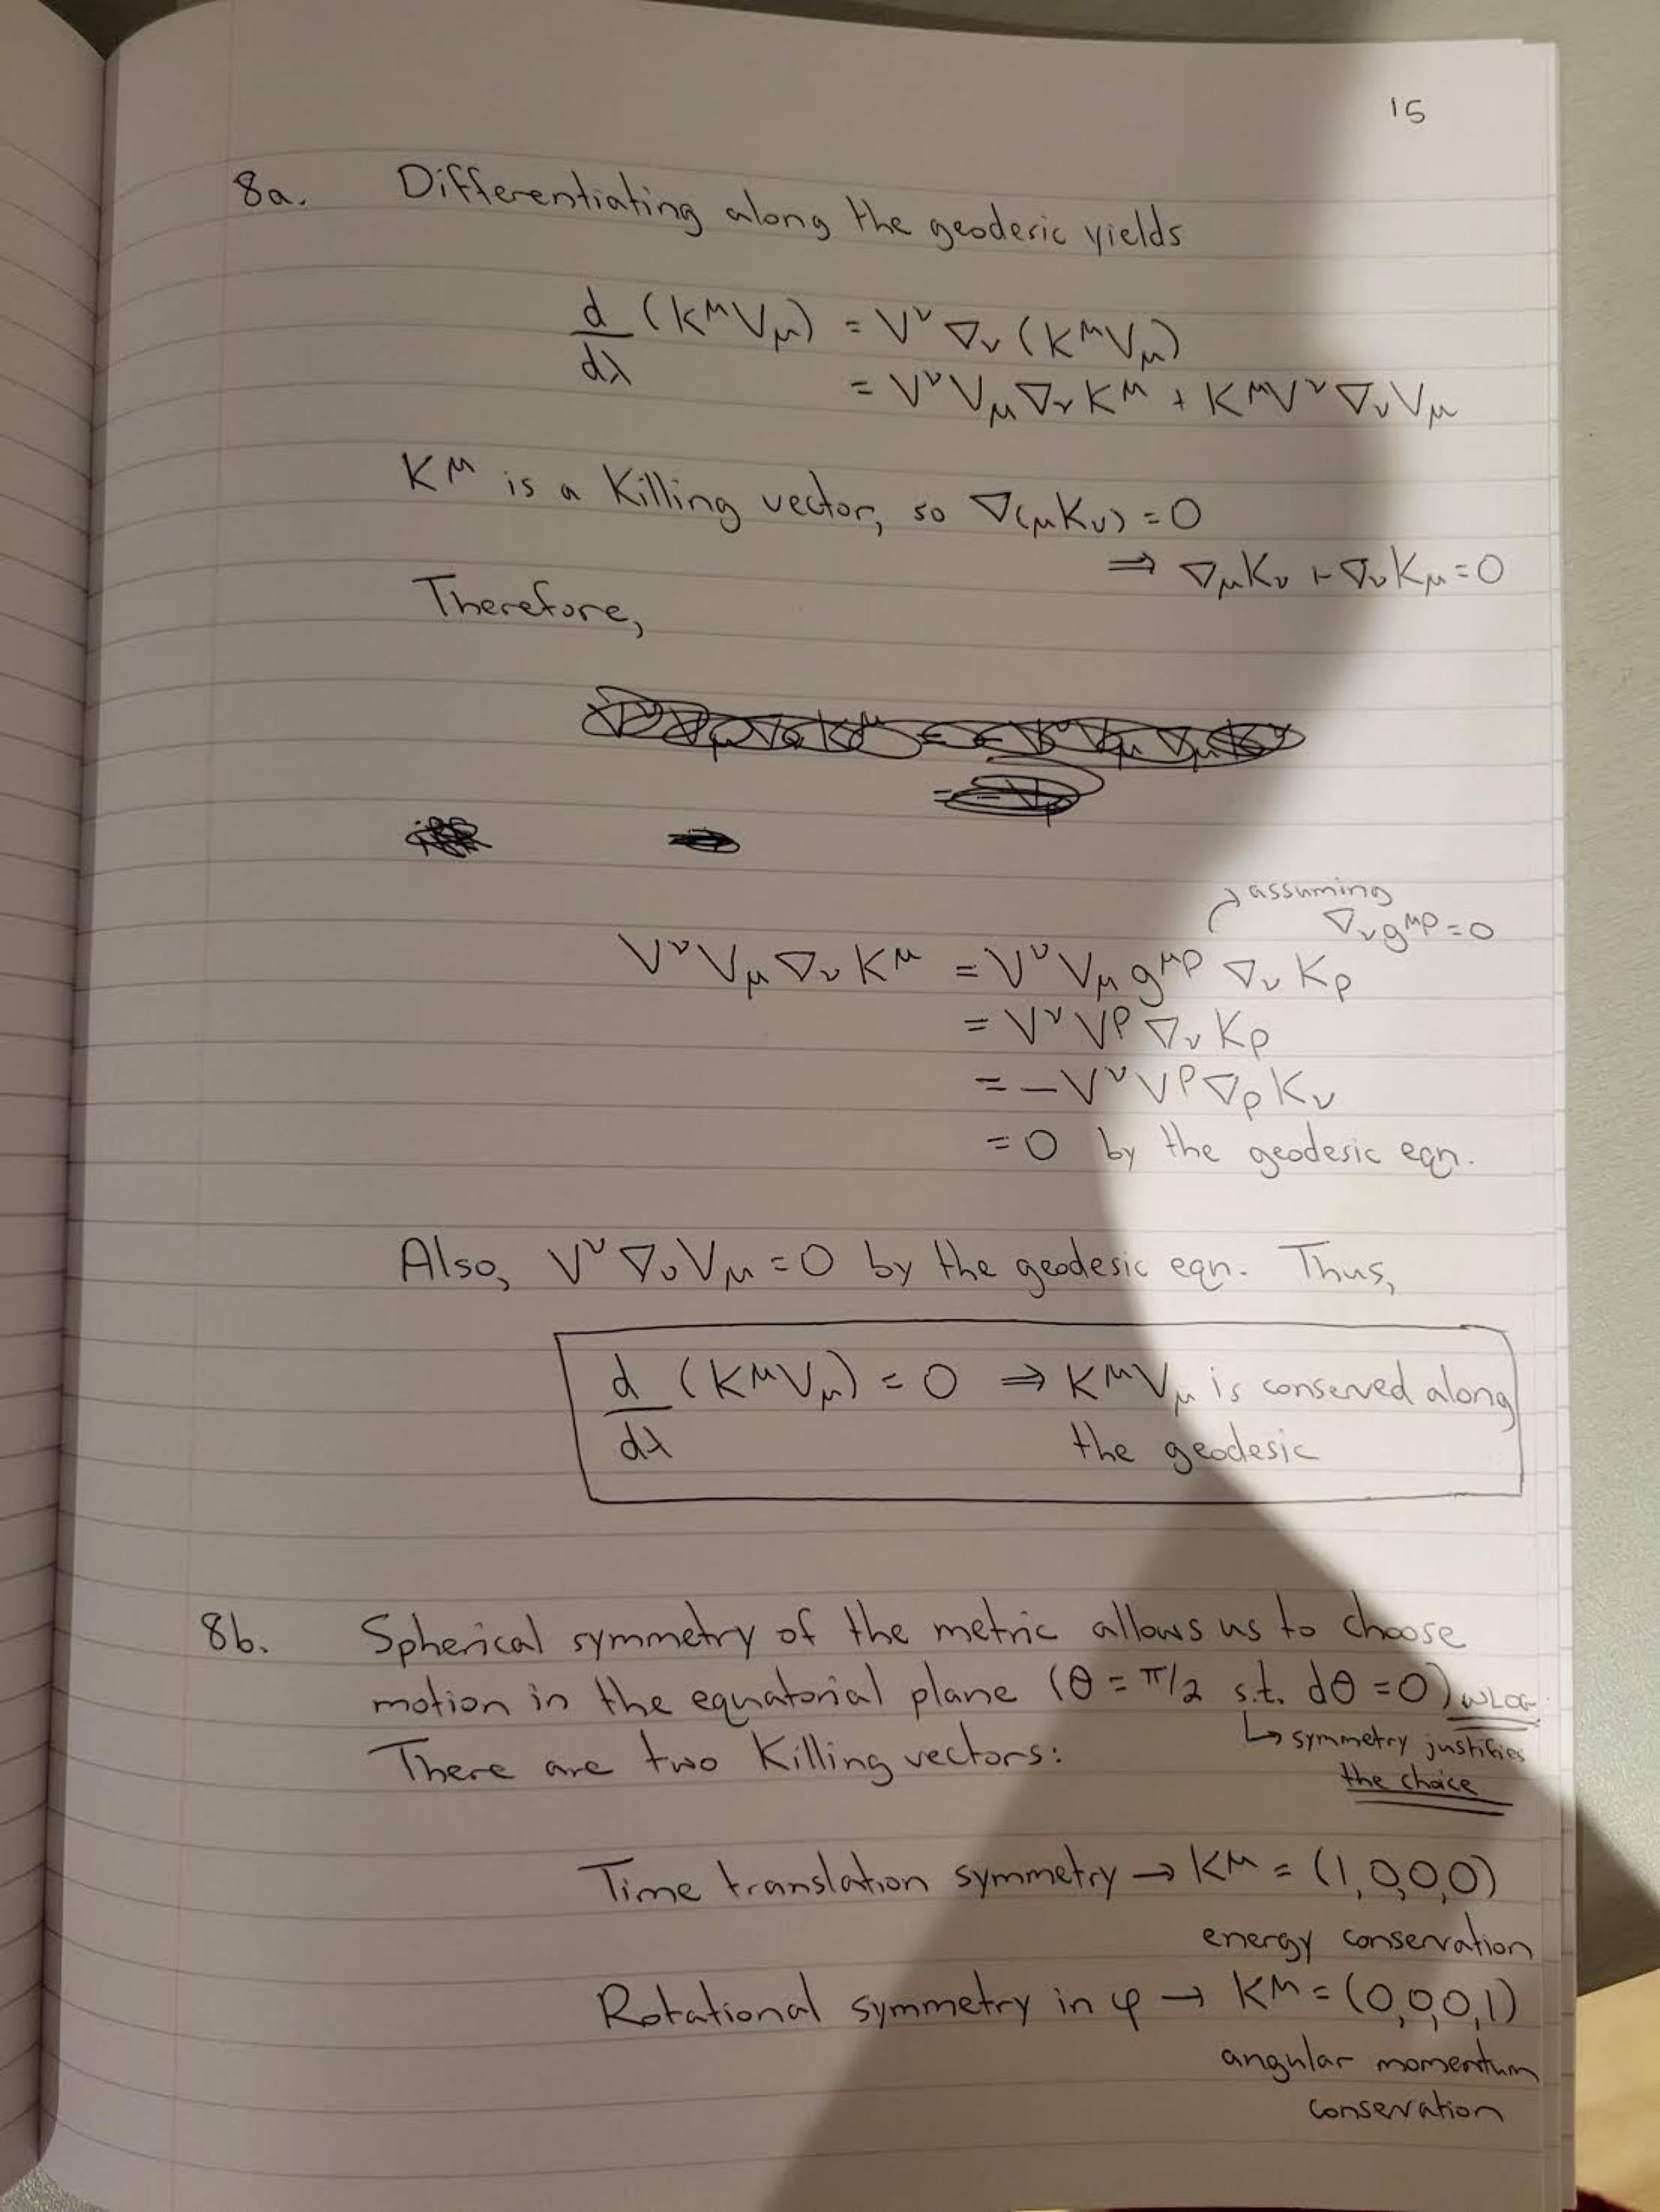 15
8a. Differentiating along the geoderic yields
d/dλ (K^μ V_μ) = V^ν ∇_ν (K^μ V_μ)
= V^ν V_μ ∇_ν K^μ + K^μ V^ν ∇_ν V_μ
K^μ is a Killing vector, so ∇_(μ K_ν) = 0
⇒ ∇_μ K_ν + ∇_ν K_μ = 0
Therefore,
assuming
∇_ν g^μρ = 0
V^ν V_μ ∇_ν K^μ = V^ν V_μ g^μρ ∇_ν K_ρ
= V^ν V^ρ ∇_ν K_ρ
= - V^ν V^ρ ∇_ρ K_ν
= 0 by the geodesic eqn.
Also, V^ν ∇_ν V_μ = 0 by the geodesic eqn. Thus,
d/dλ (K^μ V_μ) = 0 ⇒ K^μ V_μ is conserved along
the geodesic
8b. Spherical symmetry of the metric allows us to choose
motion in the equatorial plane (θ = π/2 s.t. dθ = 0) WLOG
↳ symmetry justifies
the choice
There are two Killing vectors:
Time translation symmetry → K^μ = (1,0,0,0)
energy conservation
Rotational symmetry in φ → K^μ = (0,0,0,1)
angular momentum
conservation